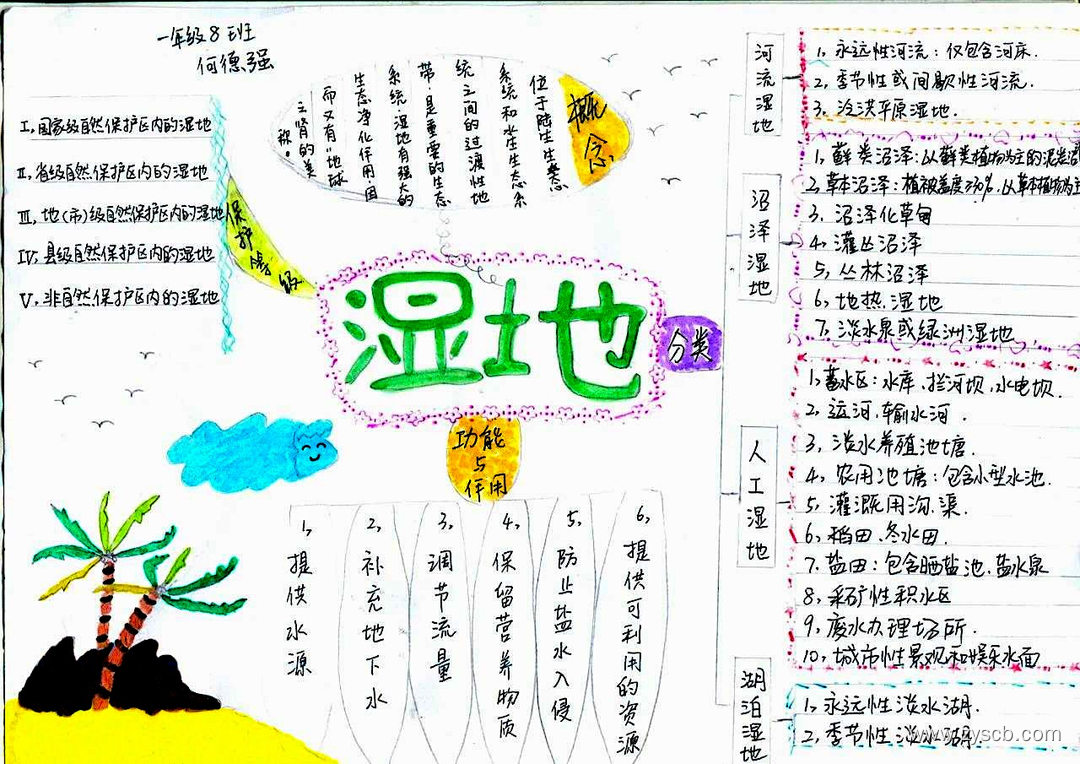 一年级8班
何德强
概念
位于陆生生态系
系统和水生生态系
统之间的过渡性地
带.是重要的生态
系统湿地有强大的
生态净化作用.因
而又有"地球
之肾的美
称。
保护等级
I、国家级自然保护区内的湿地
II、省级自然保护区内的湿地
III、地(市)级自然保护区内的湿地
IV、县级自然保护区内的湿地
V、非自然保护区内的湿地
湿地
分类
功能
与
作用
1、提供水源
2、补充地下水
3、调节流量
4、保留营养物质
5、防止盐水入侵
6、提供可利用的资源
河流湿地
1、永远性河流：仅包含河床.
2、季节性或间歇性河流.
3、泠洪平原湿地.
沼泽湿地
1、藓类沼泽：以藓类植物为主的泥炭沼
2、草本沼泽：植被盖度≥30%，以草本植物为主
3、沼泽化草甸
4、灌丛沼泽
5、丛林沼泽
6、地热湿地
7、淡水泉或绿洲湿地
人工湿地
1、蓄水区：水库、拦河坝、水电坝.
2、运河、输水河.
3、淡水养殖池塘.
4、农用池塘：包含小型水池.
5、灌溉用沟、渠.
6、稻田、冬水田.
7、盐田：包含晒盐池、盐水泉
8、采矿性积水区
9、废水办理场所.
10、城市性景观和娱乐水面
湖泊湿地
1、永远性淡水湖.
2、季节性淡水湖.
www.zyscb.com